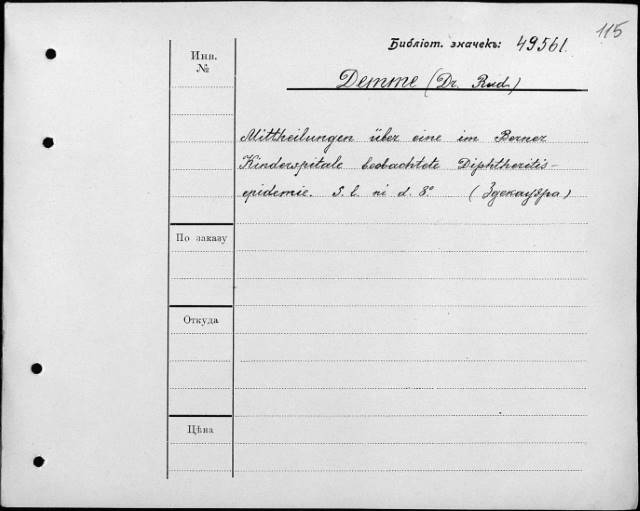 115
Библіот. значекъ: 49561.
Инв.
№
Demme (Dr. Rud.)
Mittheilungen über eine im Berner
Kinderspitale beobachtete Diphtheritis-
epidemie. S. l. ni d. 8° (Здекауэра)
По заказу
Откуда
Цѣна